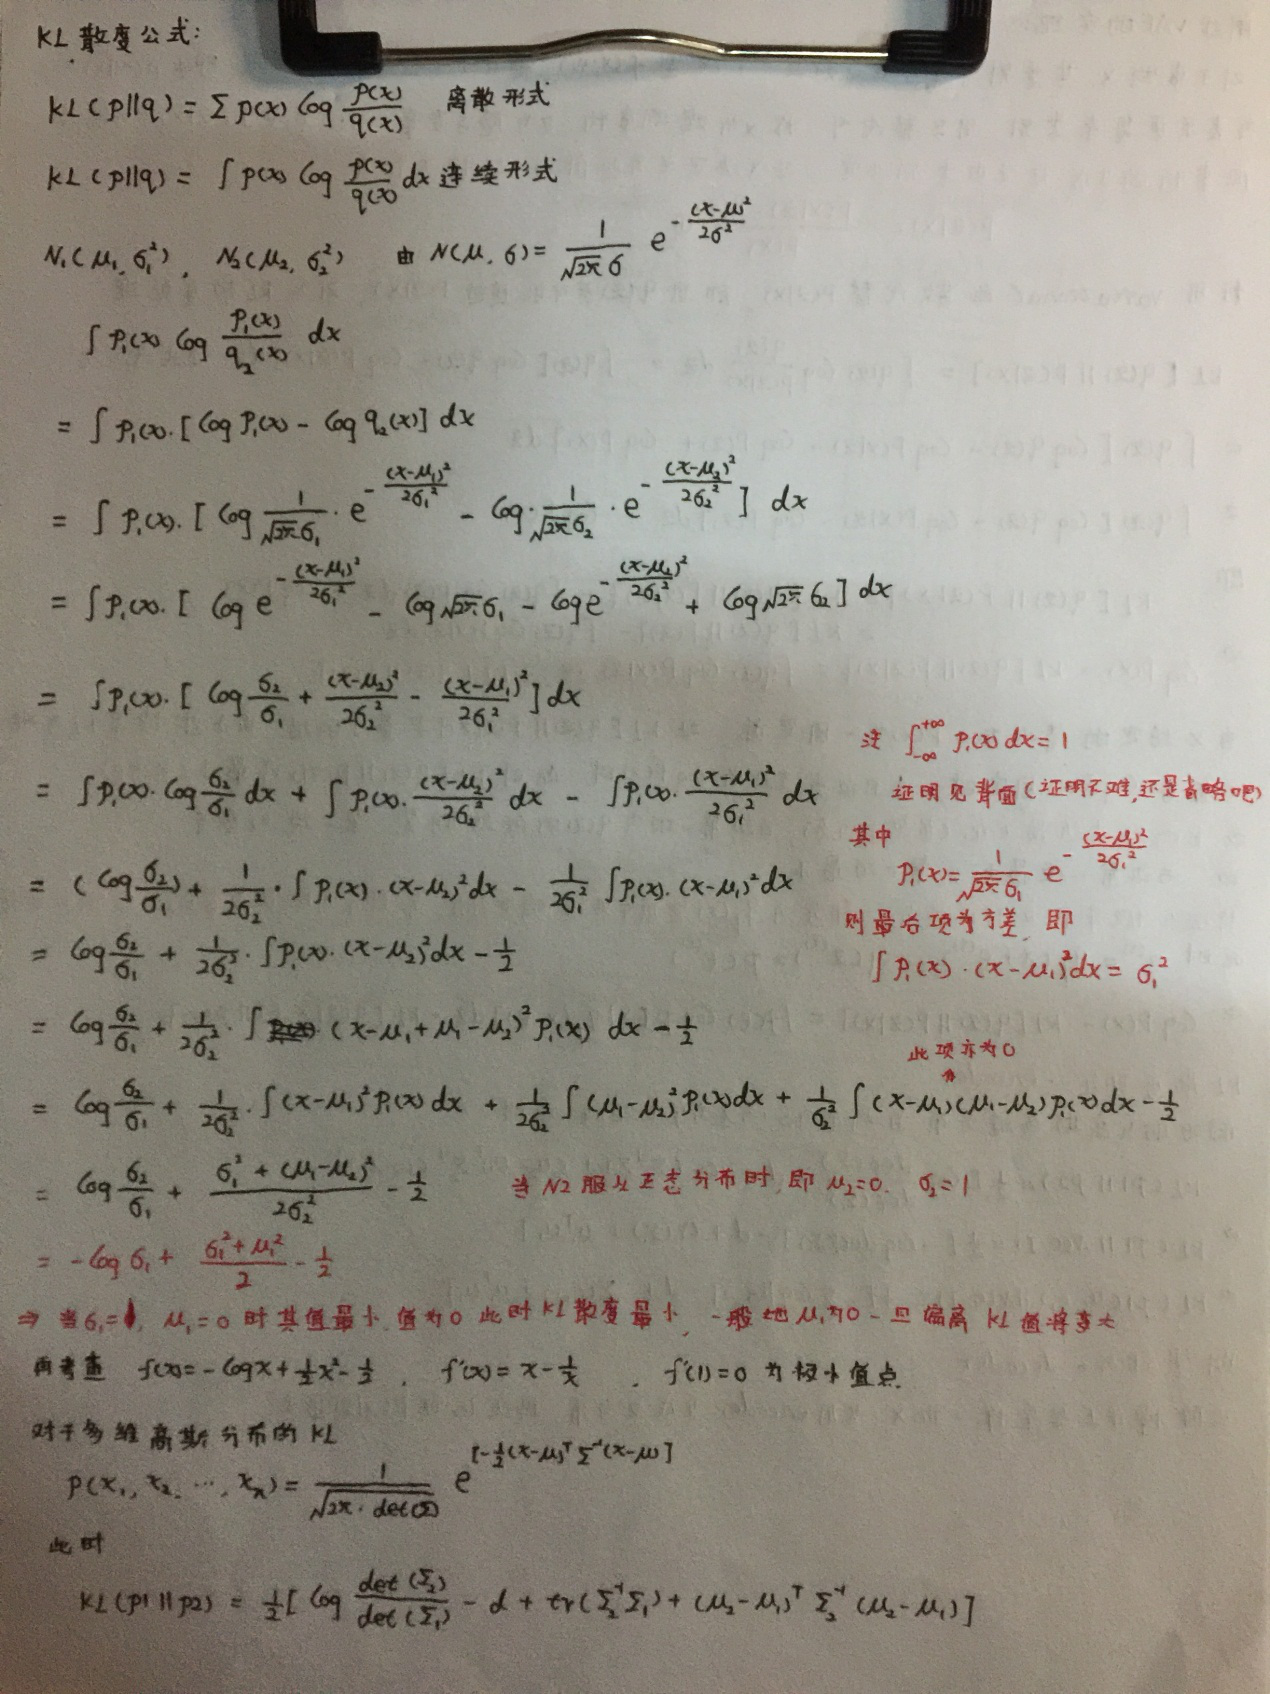 KL 散度公式:
KL(p||q) = Σ p(x) log p(x)/q(x) 离散形式
KL(p||q) = ∫ p(x) log p(x)/q(x) dx 连续形式
N₁(μ₁, σ₁²), N₂(μ₂, σ₂²) 由 N(μ, σ) = 1/(√2π σ) e^{-(x-μ)²/2σ²}
∫ P₁(x) log P₁(x)/q₂(x) dx
= ∫ P₁(x)·[log P₁(x) - log q₂(x)] dx
= ∫ P₁(x)·[log 1/(√2π σ₁) · e^{-(x-μ₁)²/2σ₁²} - log· 1/(√2π σ₂) · e^{-(x-μ₂)²/2σ₂²}] dx
= ∫ P₁(x)·[log e^{-(x-μ₁)²/2σ₁²} - log √2π σ₁ - log e^{-(x-μ₂)²/2σ₂²} + log √2π σ₂] dx
= ∫ P₁(x)·[log σ₂/σ₁ + (x-μ₂)²/2σ₂² - (x-μ₁)²/2σ₁²] dx
= ∫ P₁(x)·log σ₂/σ₁ dx + ∫ P₁(x)·(x-μ₂)²/2σ₂² dx - ∫ P₁(x)·(x-μ₁)²/2σ₁² dx
= (log σ₂/σ₁) + 1/2σ₂² · ∫ P₁(x)·(x-μ₂)² dx - 1/2σ₁² ∫ P₁(x)·(x-μ₁)² dx
= log σ₂/σ₁ + 1/2σ₂² · ∫ P₁(x)·(x-μ₂)² dx - 1/2
注 ∫_{-∞}^{+∞} P₁(x) dx = 1
证明见背面(证明不难,还是省略吧)
其中
P₁(x) = 1/(√2π σ₁) e^{-(x-μ₁)²/2σ₁²}
则最后项为方差, 即
∫ P₁(x)·(x-μ₁)² dx = σ₁²
= log σ₂/σ₁ + 1/2σ₂² · ∫ (x-μ₁+μ₁-μ₂)² P₁(x) dx - 1/2
此项亦为0
= log σ₂/σ₁ + 1/2σ₂² · ∫ (x-μ₁)² P₁(x) dx + 1/2σ₂² ∫ (μ₁-μ₂)² P₁(x) dx + 1/σ₂² ∫ (x-μ₁)(μ₁-μ₂) P₁(x) dx - 1/2
= log σ₂/σ₁ + (σ₁² + (μ₁-μ₂)²)/2σ₂² - 1/2 当 N2 服从正态分布时, 即 μ₂=0, σ₂=1
= -log σ₁ + (σ₁²+μ₁²)/2 - 1/2
⇒ 当 σ₁=1, μ₁=0 时其值最小 值为0 此时 KL 散度最小, 一般地 μ₁为0 一旦偏离 KL 值将变大
再考查 f(x) = -log x + 1/2 x² - 1/2, f'(x) = x - 1/x, f'(1)=0 为极小值点
对于多维高斯分布的 KL
P(x₁, x₂, ⋯, xₙ) = 1/√(2π · det(Σ)) e^{[-1/2 (x-μ)ᵀ Σ⁻¹ (x-μ)]}
此时
KL(p1||p2) = 1/2 [log det(Σ₂)/det(Σ₁) - d + tr(Σ₂⁻¹Σ₁) + (μ₂-μ₁)ᵀ Σ₂⁻¹ (μ₂-μ₁)]